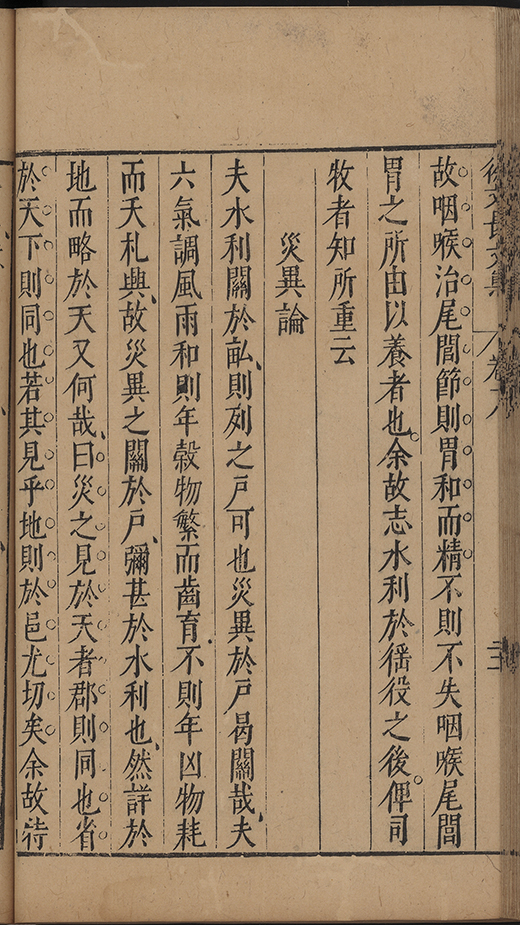 徐文長文集 卷十八 二
故咽喉治尾閭節則胃和而精不則不失咽喉尾閭
胃之所由以養者也余故志水利於徭役之後俾司
牧者知所重云
災異論
夫水利關於畝則列之戶可也災異於戶曷關哉夫
六氣調風雨和則年榖物繁而齒育不則年凶物耗
而夭札興故災異之關於戶彌甚於水利也然詳於
地而略於天又何哉曰災之見於天者郡則同也省
於天下則同也若其見乎地則於邑尤切矣余故特